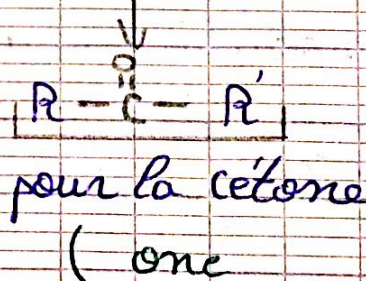 O
R — C — R'
pour la cétone
( one